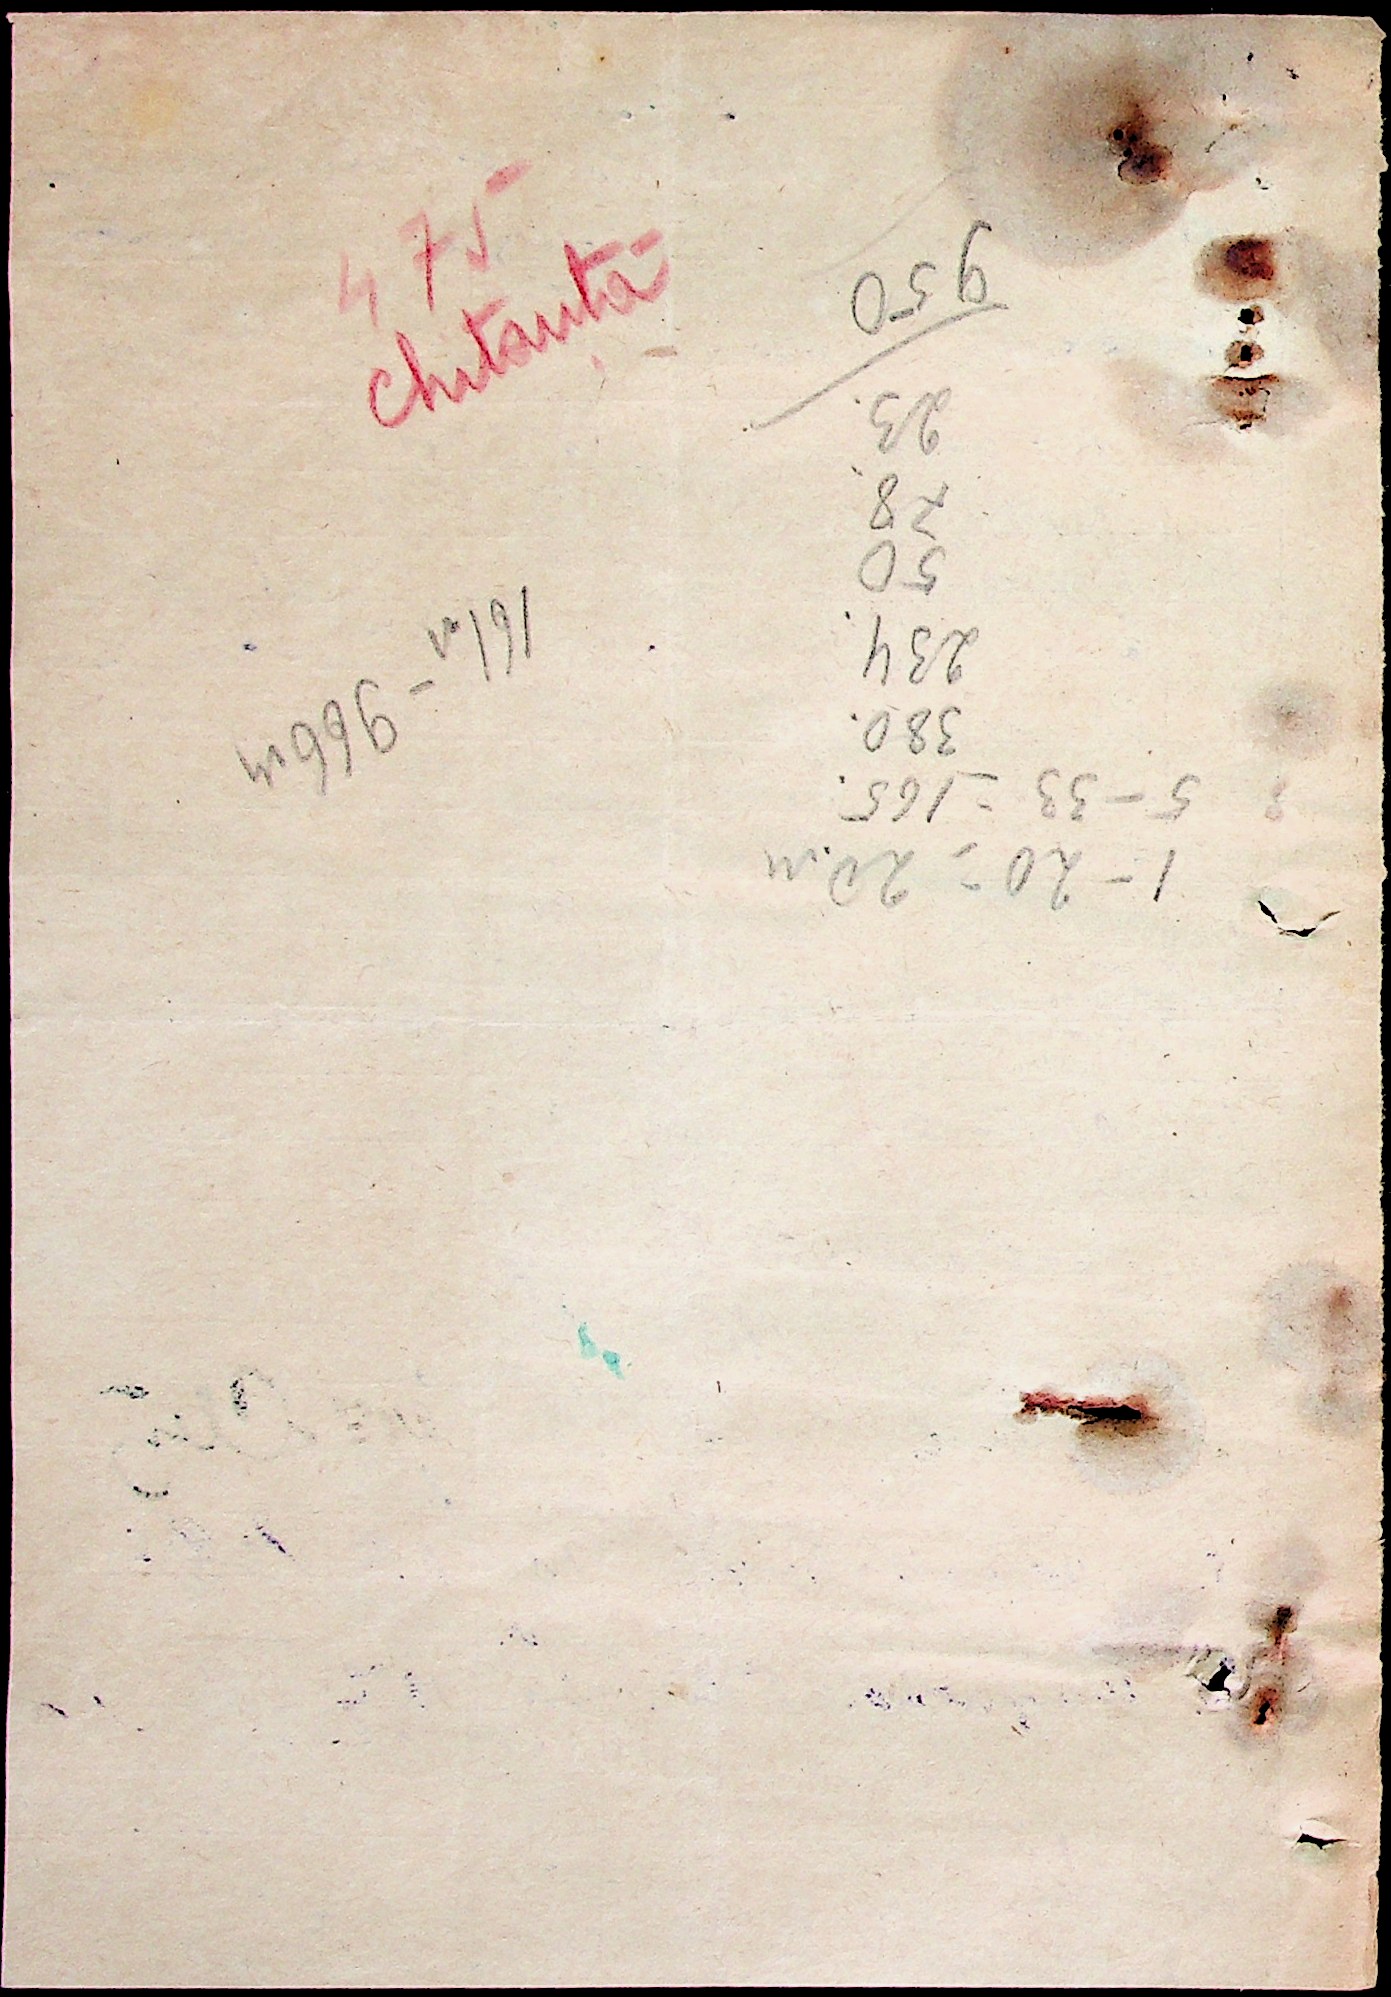 475
chitanta
1 - 20 = 20 m
5 - 33 = 165.
380.
234.
50
28.
23.
950
161 - 966 m